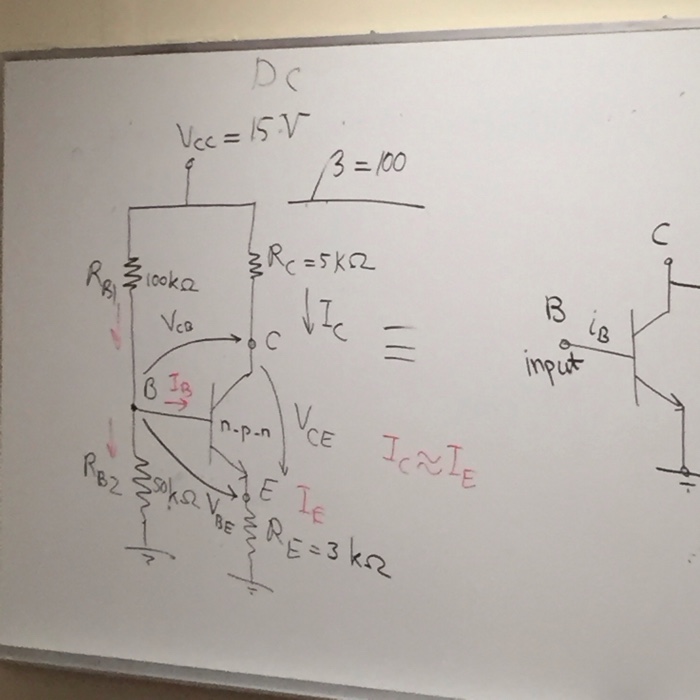 DC
Vcc = 15.V
β = 100
RB1
100kΩ
RC = 5kΩ
VCB
IC
C
B
IB
n-p-n
VCE
RB2
50kΩ
VBE
E
IE
RE = 3 kΩ
≡
IC ≈ IE
C
B
iB
input